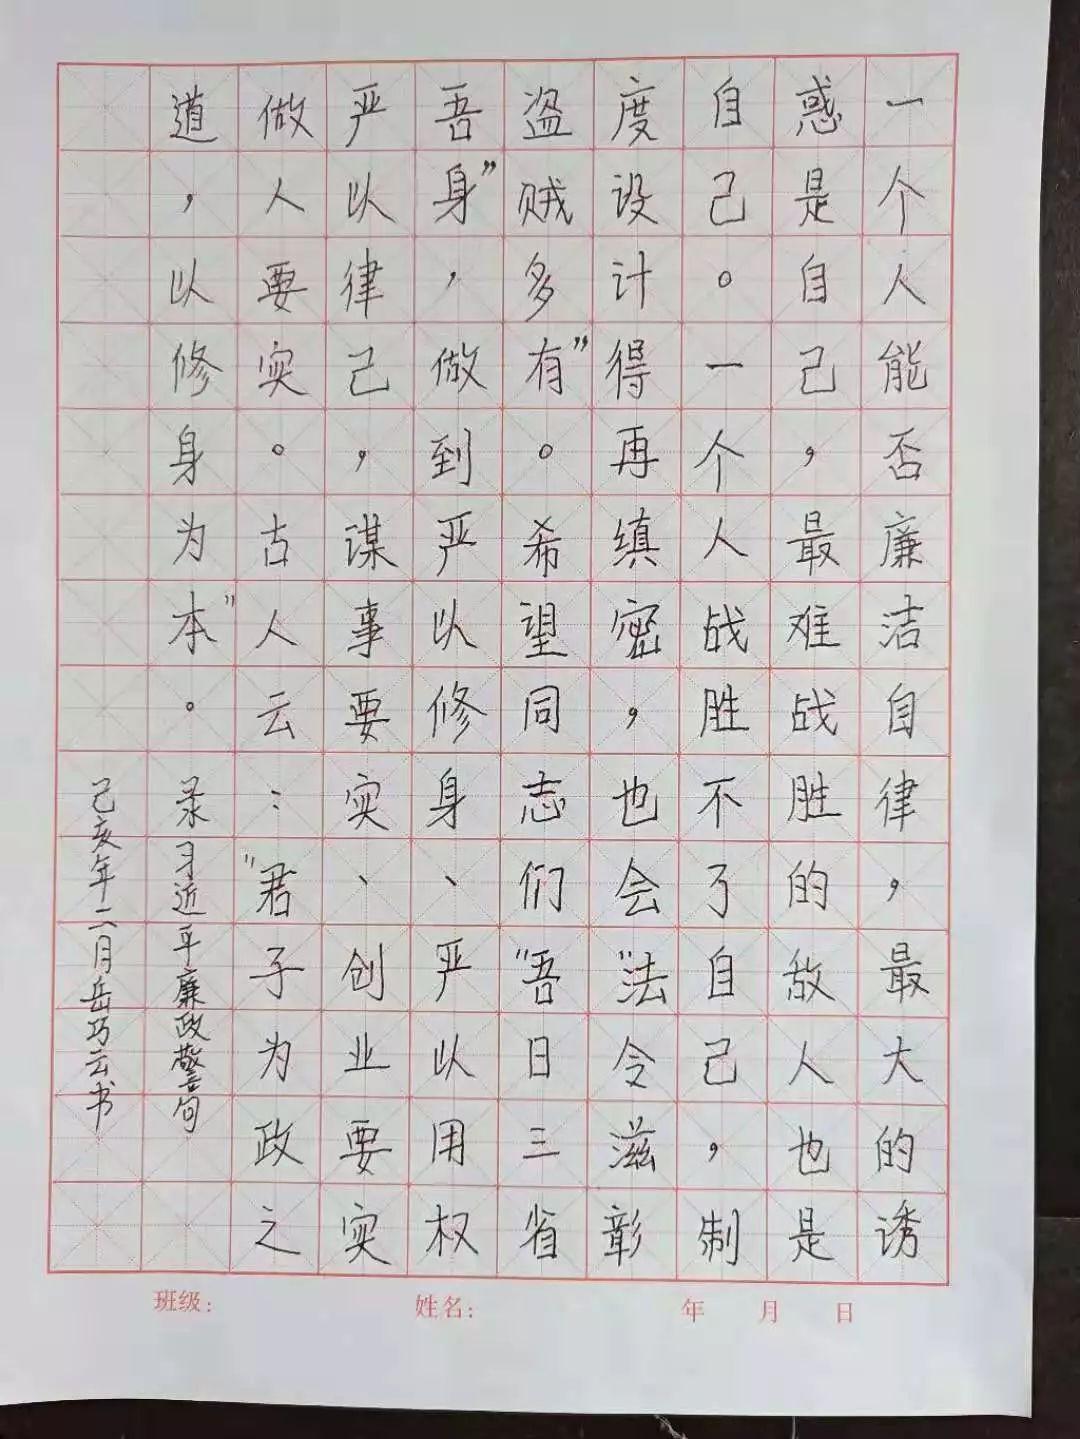 一个人能否廉洁自律，最大的诱
惑是自己，最难战胜的敌人也是
自己。一个人战胜不了自己，制
度设计得再缜密，也会“法令滋彰
盗贼多有”。希望同志们“吾日三省
吾身”，做到严以修身、严以用权
严以律己，谋事要实、创业要实
做人要实。古人云：“君子为政之
道，以修身为本”。录习近平廉政警句
己亥年二月岳巧云书
班级： 姓名： 年 月 日